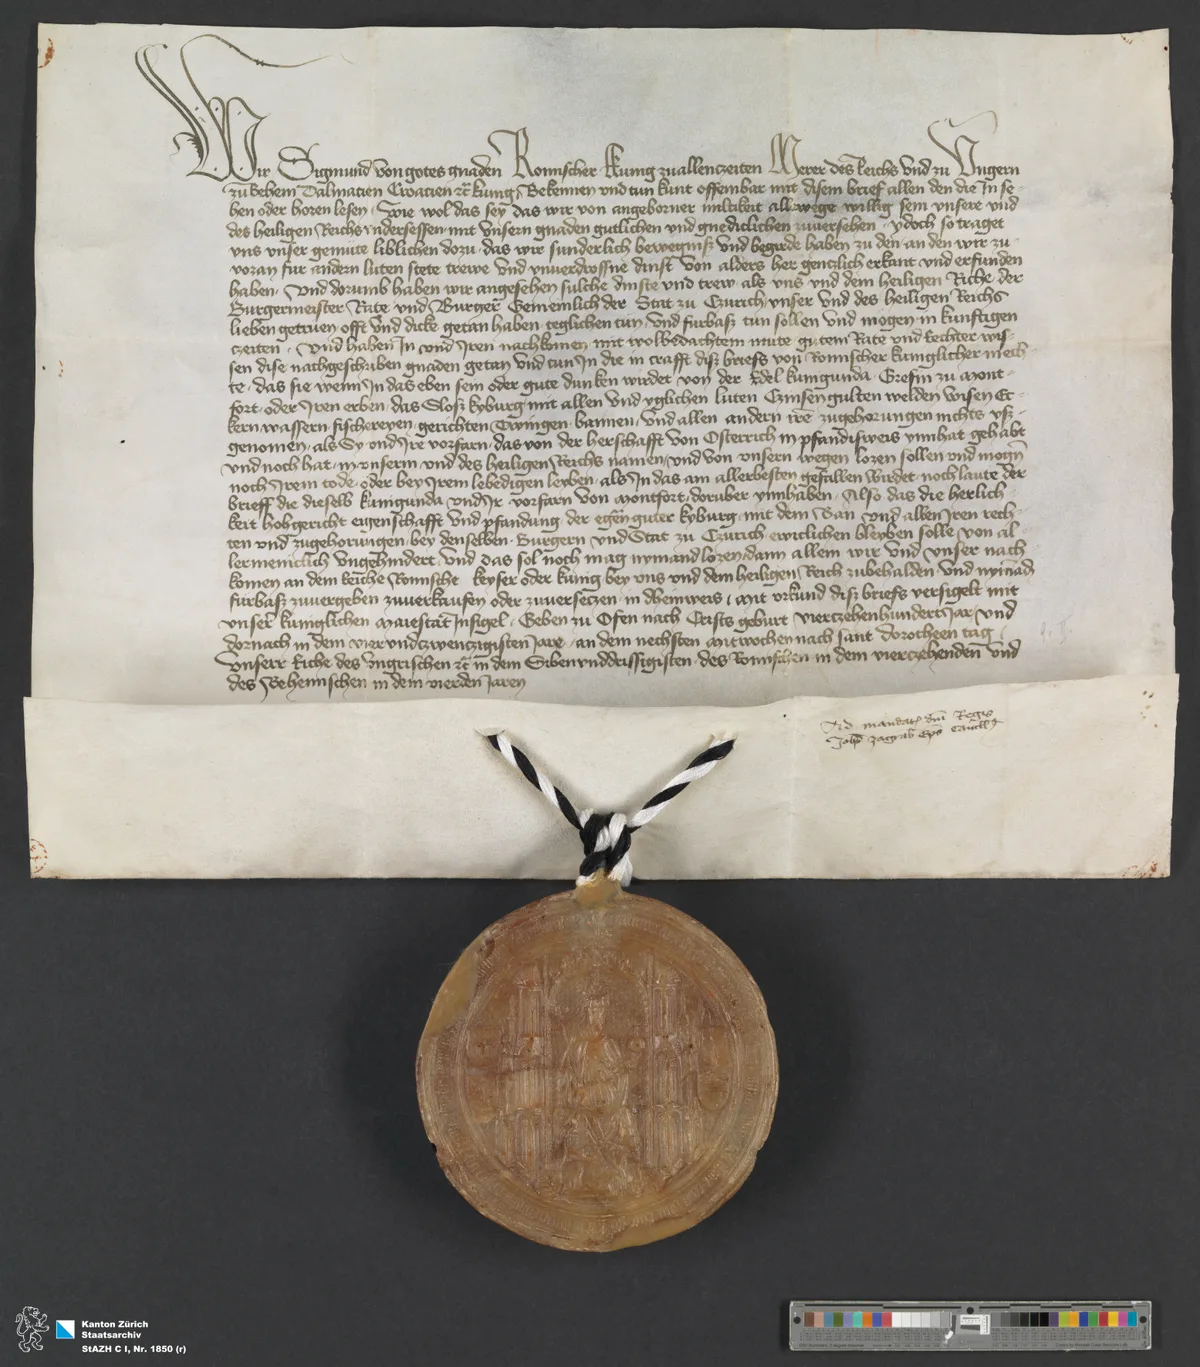 Wir Sigmund von gotes gnaden Romischer kunig zuallenczeiten Merer des Reichs und zu Ungern
zu Behem Dalmatien Croatien etc kunig Bekennen und tun kunt offembar mit disem brief allen den die In se-
hen oder horen lesen Wie wol das sey das wir von angeborner miltikeit allwege willig sein unsere und
des heiligen Reichs undersessen mit unsern gnaden gutlichen und gnediclichen zuversehen ydoch so traget
uns unser gemute liblichen dozu das wir sunderlich bewegniß und begirde haben zu den an den wir zu-
voran fur andern luten stete trewe und unverdrossne dinst von alders her genczlich erkant und erfunden
haben Und dorumb haben wir angesehen sulche dinste und trew als uns und dem heiligen Riche der
Burgermeister Rate und Burger Gemeinlich der Stat zu Czurich unser und des heiligen Reichs
lieben getruen offt und dicke getan haben teglichen tun und furbaß tun sollen und mogen in kunftigen
czeiten Und haben In und Iren nachkomen mit wolbedachtem mute gutem Rate und Rechter wis-
sen dise nachgeschriben gnaden getan und tun In die in crafft diß briefs von Romischer kuniglicher mech-
te das sie wenn In das eben sein oder gute dunken wirdet von der Edel kunigunda Grefin zu Mont-
fort oder Iren erben das Sloß kyburg mit allen und yglichen luten Czinsen gulten welden wisen Ec-
kern wassern fischereyen gerichten Twingen bannen und allen andern ire zugehorungen nichts uß-
genomen als Sy und Ire vorfarn das von der herschafft von Osterrich in pfandisweis ynnhat gehabt
und noch hat in unserm und des heiligen Reichs namen und von unsern wegen lozen sollen und mogen
noch Irem tode oder bey Irem lebedigen leyben als In das am allerbesten gefallen wirdet noch laute der
brieff die dieselb kunigunda und Ir vorfarn von Montfort doruber ynnhaben Also das die herlich-
keit hohgericht eugenschafft und pfandung der egen guter kyburg mit dem Ban und allen Iren rech-
ten und zugehorungen bey denselben Burgern und Stat zu Czurich ewiclichen bleyben solle von al-
lermeniclich ungehindert und das sol noch mag nymand lozen dann allein wir und unser nach-
komen an dem Reiche Romische keyser oder kunig bey uns und dem heiligen Reich zubehalden und nymand
furbaß zuvergeben zuverkaufen oder zuverseczen in dheinweis Mit urkund diß briefs versigelt mit
unser kuniglichen maiestat Insigel Geben zu Ofen nach Crists geburt vierczehenhundert Jar und
dornach in dem vierundczwenczigisten Jare an dem nechsten Mitwochen nach sant dorotheen tag
Unserr Riche des Ungrischen etc in dem Sibenunddrissigisten des Romischen in dem vierczehenden und
des Behemischen in dem vierden Jaren
Ad mandatum domini Regis
Johannes zagrabiensis Episcopus Cancellarius
Kanton Zürich
Staatsarchiv
StAZH C I, Nr. 1850 (r)